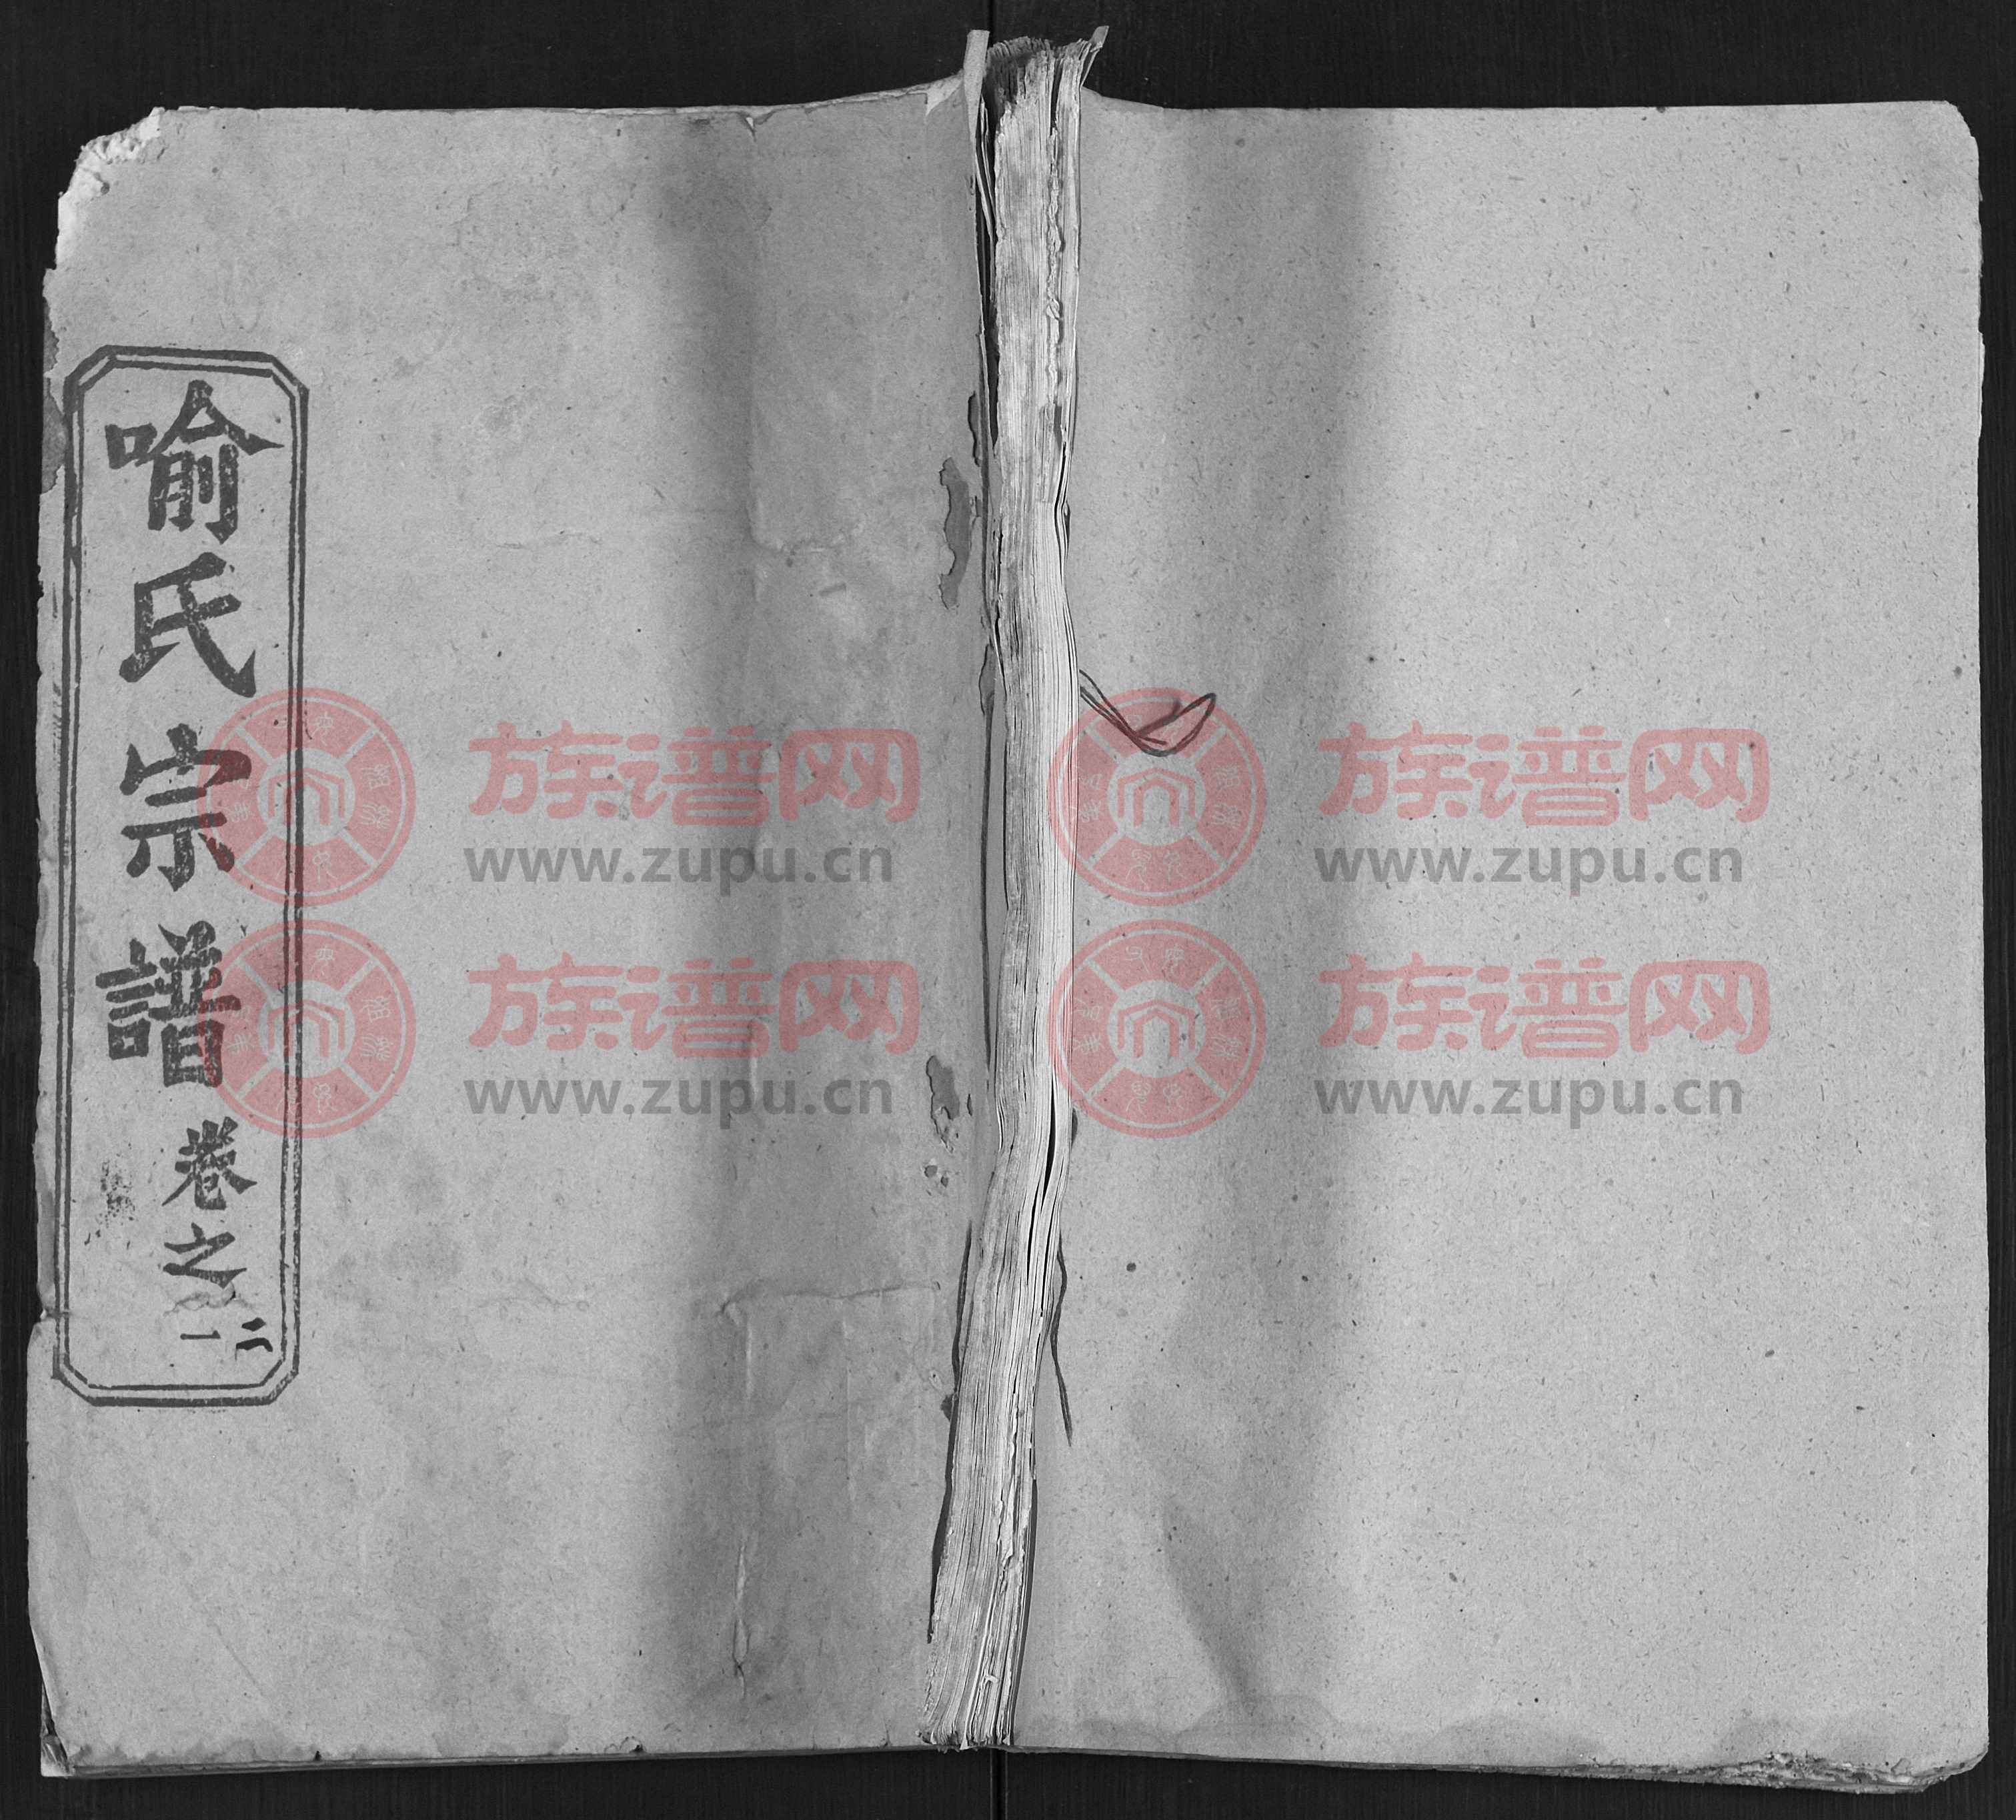 喻氏宗譜卷之一
二
族谱网
www.zupu.cn
族谱网
www.zupu.cn
族谱网
www.zupu.cn
族谱网
www.zupu.cn